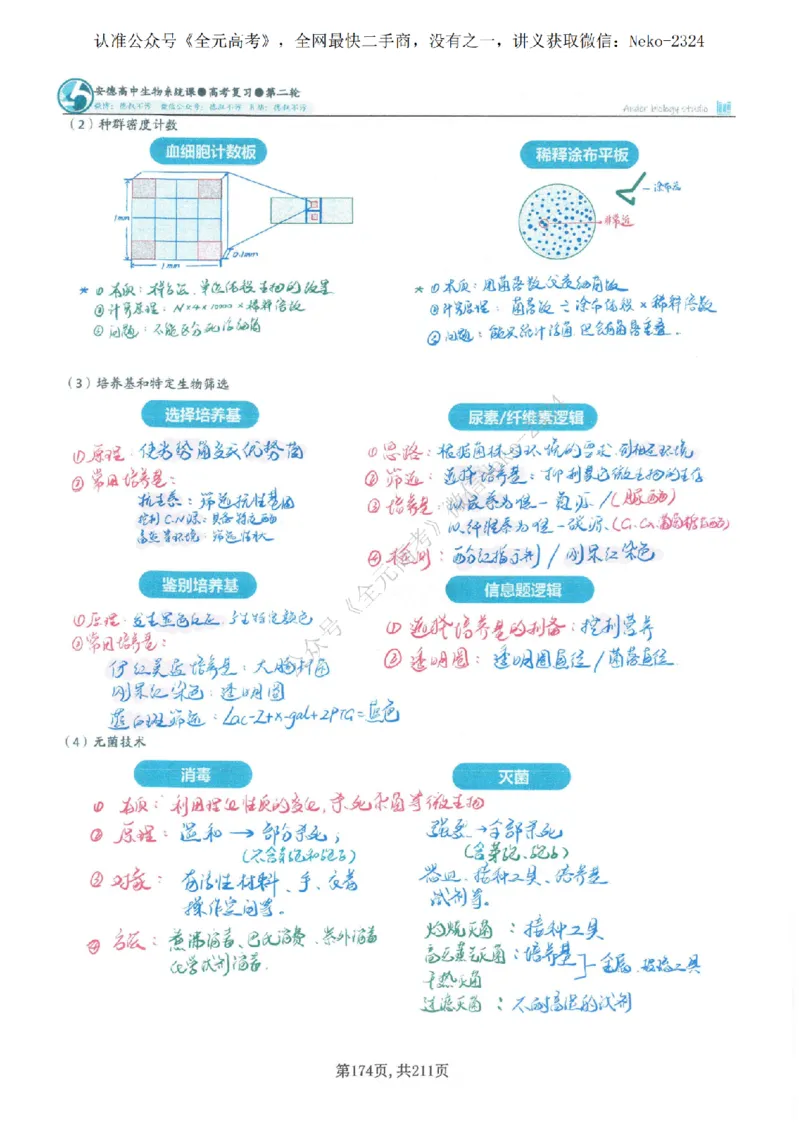 认准公众号《全元高考》，全网最快二手商，没有之一，讲义获取微信：Neko-2324
安德高中生物系统课●高考复习●第二轮
微博：德叔不唠 微信公众号：德叔不唠 B站：德叔不唠
Ander biology studio
（2）种群密度计数
血细胞计数板
1mm
1mm
0.1mm
★①本质：样方法、单位体积生物的数量
②计算原理：N×4×10000×稀释倍数
③问题：不能区分死活细菌
稀释涂布平板
涂布器
★①本质：用菌落数代表细菌数
②计算原理：菌落数÷涂布体积×稀释倍数
③问题：能只统计活菌但会有菌落重叠。
（3）培养基和特定生物筛选
选择培养基
①原理：使劣势菌变成优势菌
②常用培养基：
抗生素：筛选抗性基因
控制C、N源：具备特定酶
高盐等环境：筛选性状
尿素/纤维素逻辑
①思路：根据菌体对环境的需求，到相应环境
②筛选：选择培养基：抑制其它微生物的生存
③培养基：以尿素为唯一氮源/(脲酶)
以纤维素为唯一碳源、(C₁、Cx、葡萄糖苷酶)
④检测：酚红指示剂/刚果红染色
鉴别培养基
①原理：发生显色反应，产生特定颜色
②常用培养基：
伊红美蓝培养基：大肠杆菌
刚果红染色：透明圈
蓝白斑筛选：Lac-Z+X-gal+IPTG=蓝色
信息题逻辑
①选择培养基的制备：控制营养
②透明圈：透明圈直径/菌落直径
《全元高考》
（4）无菌技术
消毒
灭菌
①本质：利用理化性质的变化，杀死杂菌等微生物
②原理：温和→部分杀死；
(不含芽孢和孢子)
强烈→全部杀死
(含芽孢、孢子)
③对象：有活性材料、手、
操作空间等。
器皿、接种工具、培养基
试剂等。
④方法：煮沸消毒、巴氏消毒、紫外消毒
化学试剂消毒.
灼烧灭菌：接种工具
高压蒸汽灭菌：培养基
干热灭菌
金属、玻璃工具
过滤灭菌：不耐高温的试剂
第174页，共211页